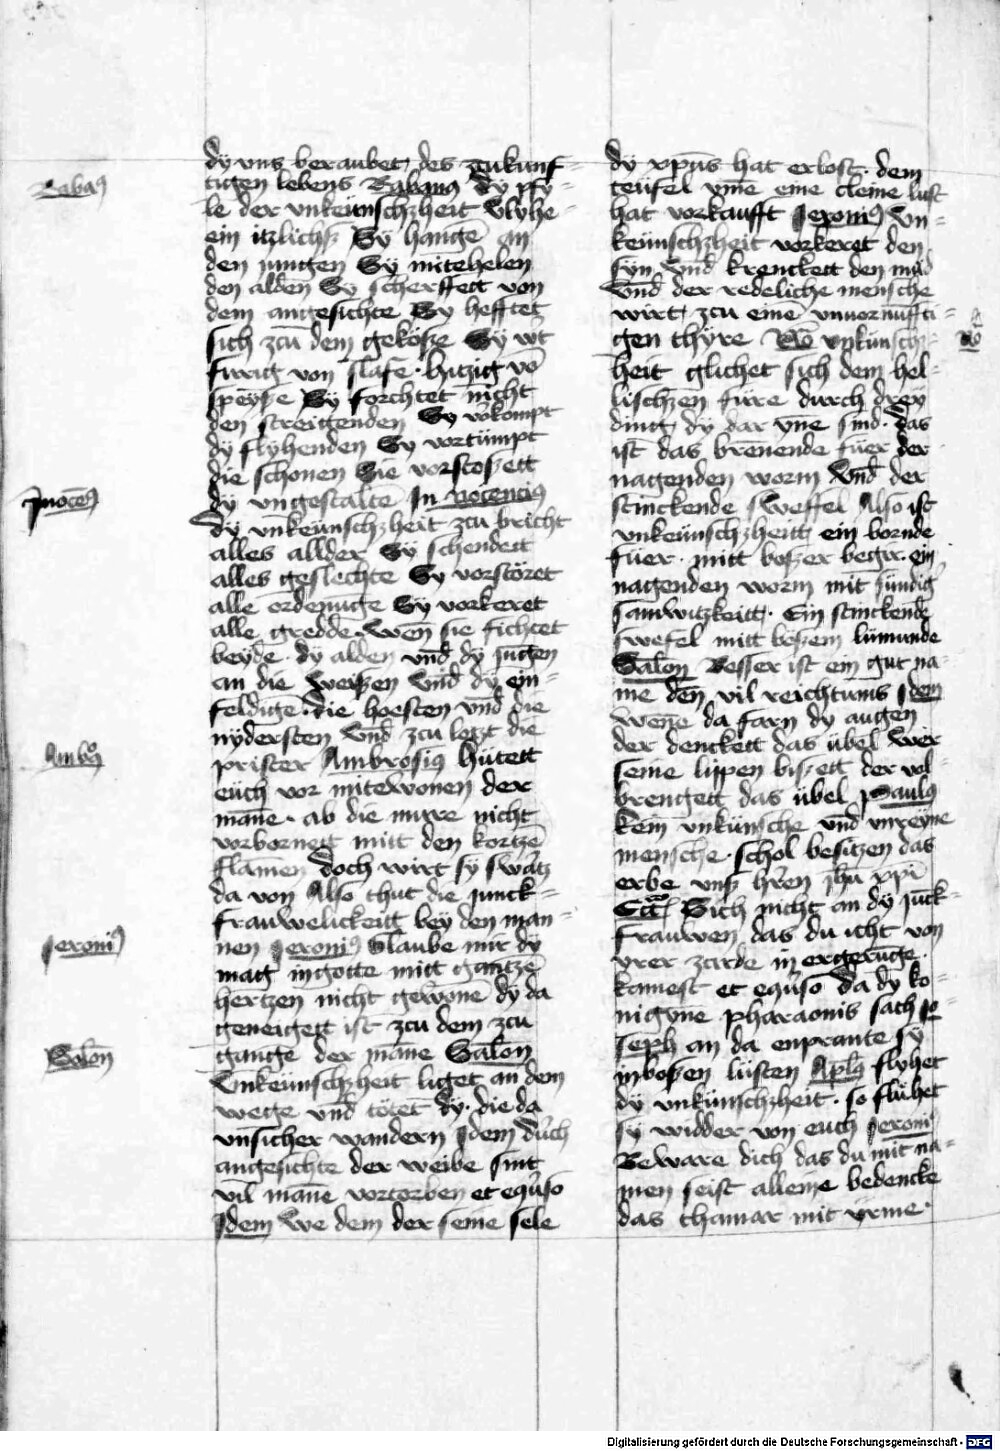 Rabanꝰ
Inocēꝰ
Ambrꝰ
Jeronīꝰ
Salon̄
dÿ vns beraubet des zcukunf=
tigen lebens Rabanꝰ dy pfy=
le der vnkeunschzheit vlyhe=
ein itzlichs Sÿ hange an
den jungen Sÿ mitehelen
den alden Sy scherffett von
dem angesichte Sy hefftet
sich zcū dem geköſze Sÿ wt
furig von slafe · hitzig vō
speyſze Sÿ forchtet nicht
den streigenden Sy vōkompt
dÿ flyhenden Sy vortümpt
die schonen Sie vorstoſzett
dÿ vngestalte Innocencius
Dÿ vnkeunschzheit zcu bricht
alles allder Sÿ schendett
alles geslechte Sy vorstöret
alle ordenūge Sÿ vorkeret
alle gredde · wen̄ sie fichtet
beyde · dÿ alden vnd̄ dÿ jūgen
an die weiſzen vnd̄ dy ein=
feldige · die hoesten vnd̄ die
nydersten vnd̄ zcu letzt die
prister Ambrosiꝰ hütett
euch vor mitewonen der
man̄e · ab die mure nicht
vorbornett mitt den kortzē
flāmen doch wirt sÿ swartz
da von Also thut die junck=
frauwelickeitt bey den man=
nen Jeronīꝰ Glaube mir dÿ
mag in gotte mitt gantzē
hertzen nicht gewone dÿ da
geneigett ist zcu dem zcu
gange der man̄e Salon̄
Vnkeünschzheit liget an dem
wege vnd̄ tötet dÿ · die da
vnsicher wandern Jdem dūch
angesichte der weibe sint
vil man̄e vortorben et eqūso
Jdem we dem der seine sele
dÿ xpūs hat erlost · dem
teufel vm̄e eine cleine lust
hat vorkaufft Jeronīꝰ Vn=
keünschzheit vorkeret den
syn vnd̄ krenckett den mūd
vnd̄ der redeliche mensche
wirt zcu einē vnuornuffti=
gen thÿre vnkūnschz=
heit glichet sich dem hel=
lischzen füre durch drey
ding dÿ dar yn̄e sind · das
ist das bren̄ende füer der
nagenden worm vnd̄ der
stinckende sweffel Also ist
vnkeünschzheitt ein bornde
füer · mitt boſzer begir · ein
nagenden worm mit sündig
sanwitzkeitt · Ein stinckende
swefel mitt böſzem lümunde
Salon̄ Besser ist ein gut na=
me den̄ vil reichtums Jdem
wene da farn dy augen
der denckett das übel wer
seine lippen biſzett der vol=
brengett das übel Paulꝰ
kein vnkünsche vnd̄ vnreyne
mensche · schol besitzen das
erbe vnſz hr̄en jhū xpi
Ecc̄ⁱ Sich nicht an dÿ jūck=
frauwen das du icht von
yrer zarde in ergerūge
kamest et eqūso da dÿ ko=
nigyne pharaonis sach jo
seph an da enprante sÿ
in boſzen lüsten Apl̄ꝰ flyhet
dÿ vnkünschzheit · so flühet
sÿ widder von euch Jeronīꝰ
Beware dich das du mit na=
men seist alleine bedencke
das thamar mit yrme ·
Digitalisierung gefördert durch die Deutsche Forschungsgemeinschaft - DFG